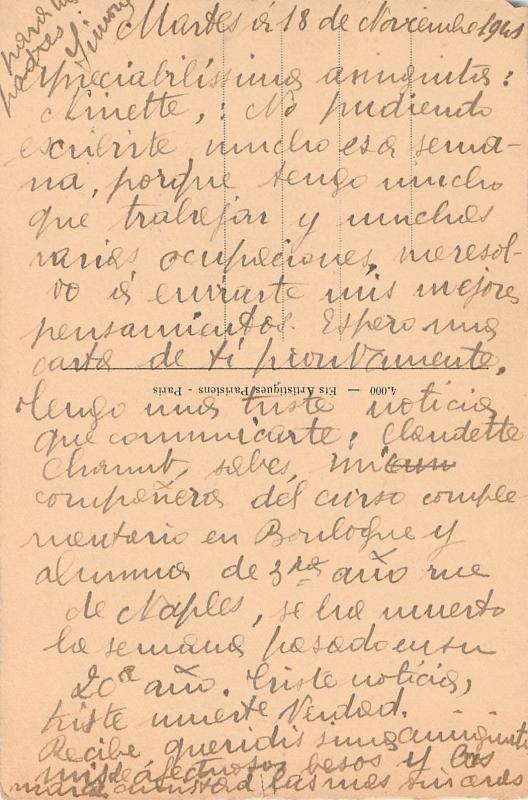 Martes á 18 de Noviembre 1941
para tus
padres
Simone
Apreciabilíssima amiguita:
Ninette,: No pudiendo
escribirte mucho esa sema-
na, porque tengo mucho
que trabajar y muchas
varias ocupaciones, me resol-
vo á enviarte mis mejores
pensamientos. Espero una
carta de ti prontamente.
4.000 — Ets Artistiques Parisiens - Paris
Tengo una triste notícia
que comunicarte: Claudette
sabes, mi
compañera del curso comple
mentario en Boulogne y
alumna de 3ra año rue
de Naples, se ha muerto
la semana pasado en su
20a año. Triste notícia,
triste muerte Verdad.
Recibe queridissima amiguita
mis afectuosos besos y las
las mas sinceras